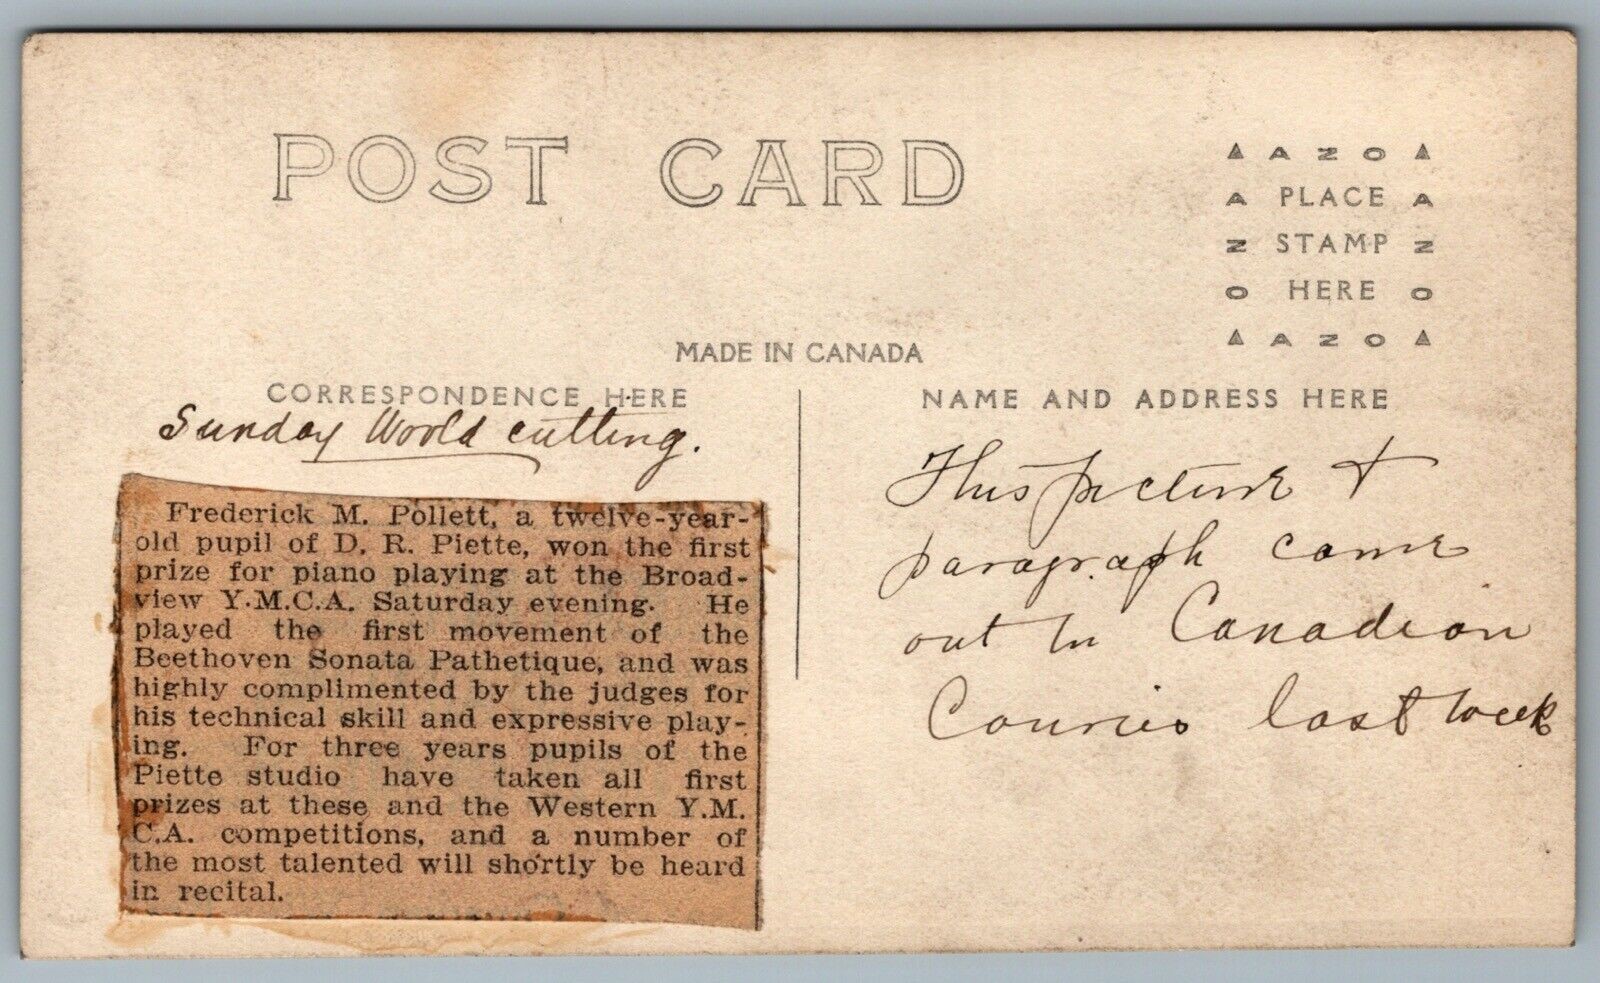 POST CARD
▲ A N O ▲
A PLACE A
N STAMP N
O HERE O
▲ A N O ▲
MADE IN CANADA
CORRESPONDENCE HERE
NAME AND ADDRESS HERE
Sunday World cutting.
Frederick M. Pollett, a twelve-year-
old pupil of D. R. Piette, won the first
prize for piano playing at the Broad-
view Y.M.C.A. Saturday evening. He
played the first movement of the
Beethoven Sonata Pathetique, and was
highly complimented by the judges for
his technical skill and expressive play-
ing. For three years pupils of the
Piette studio have taken all first
prizes at these and the Western Y.M.
C.A. competitions, and a number of
the most talented will shortly be heard
in recital.
This picture &
paragraph came
out in Canadian
Courier last week